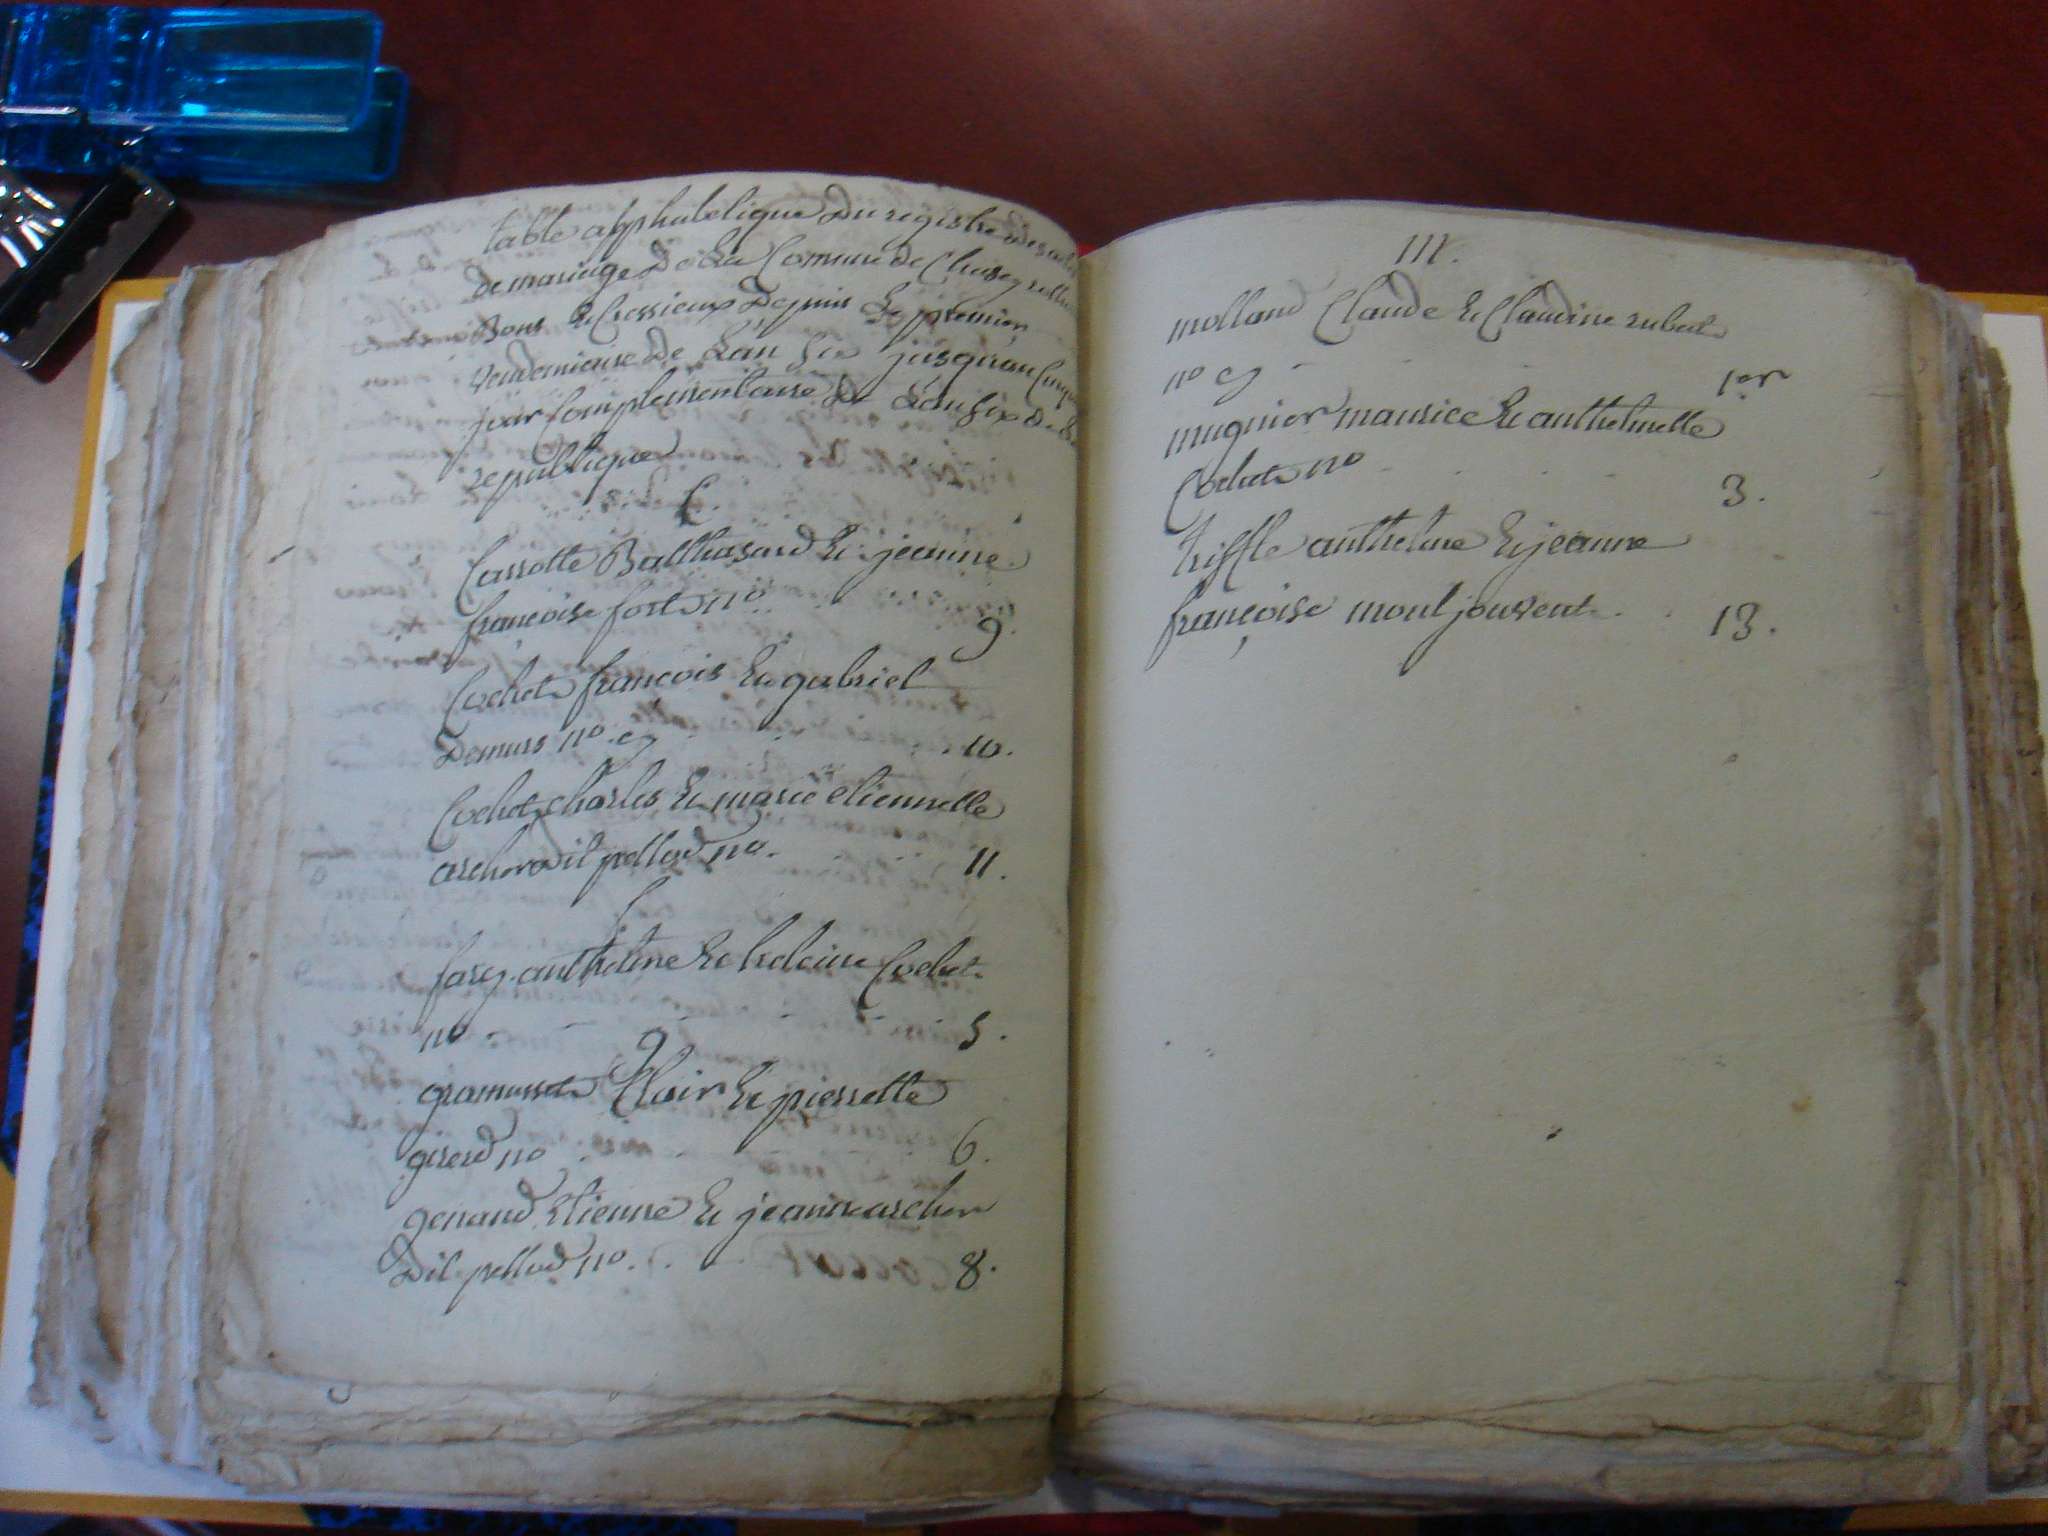 table alphabetique du registre des actes
de mariage de la Comune de Cheisey
Bons et Cressieux depuis le premier
vendemiaire de lan six jusqu'au Cinq
jour Complementaire de lan six de la
republique
C
Carrotte Balthasard et jeanne
francoise fort no 9.
Cochet francois et gabriel
Demurs no 10.
Cochet charles et marie etiennette
archer dit pellod no. 11.
f
farcy anthelme et heleine Cochet
no 5.
g
gramusset Clair et pierrette
girerd no 6.
genand etienne et jeanne archer
Dit pellod no. 8.
m.
molland Claude et Claudine rubat
no 1er
mugnier maurice et anthelmette
Cochet no 3.
triffle anthelme et jeanne
françoise montjouvent 13.